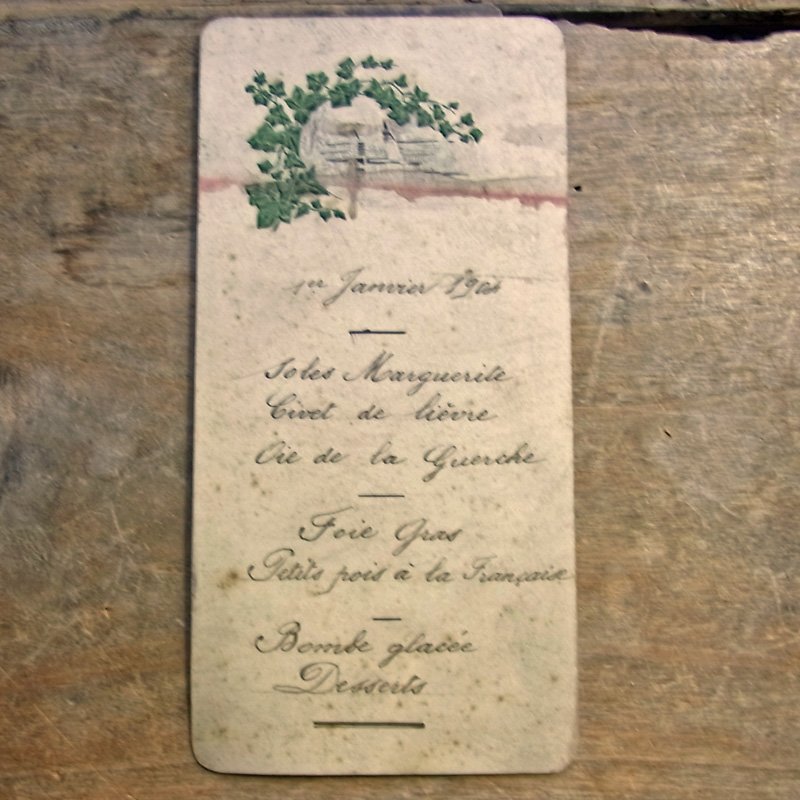 1er Janvier 1904
Soles Marguerite
Civet de lièvre
Oie de la Guerche
Foie Gras
Petits pois à la Française
Bombe glacée
Desserts